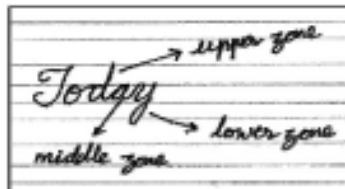 upper zone
Today
lower zone
middle zone